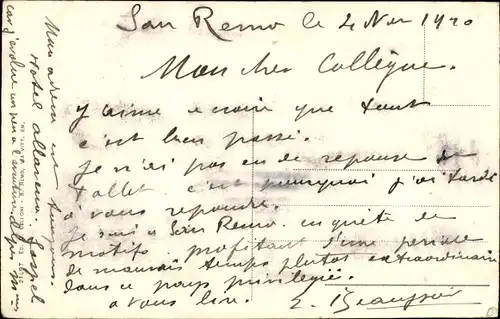 San Remo le 4 Nov 1920
Mon cher Collègue.
J'aime à croire que tout
s'est bien passé.
Je n'ai pas eu de reponse de
Tallet c'est pourquoi j'ai tardé
a vous repondre.
Je suis a San Remo. en quête de
motifs profitant d'une periode
de mauvais temps plutot extraordinaire
dans ce pays privilégié.
a vous lire. E. Beaussier
Mon adresse est toujours
Hotel
car j'evolue un peu a l'aventure